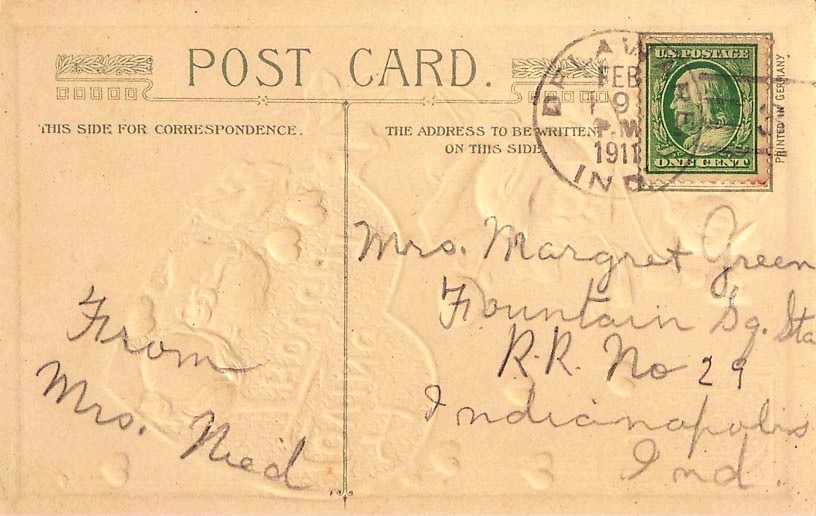 POST CARD.
THIS SIDE FOR CORRESPONDENCE.
THE ADDRESS TO BE WRITTEN
ON THIS SIDE.
DELAWARE
FEB
9
P.M.
1911
IND
U.S. POSTAGE
ONE CENT
PRINTED IN GERMANY.
Mrs. Margret Green
Fountain Sq. Sta
R.R. No 29
Indianapolis
Ind.
From
Mrs. Nead